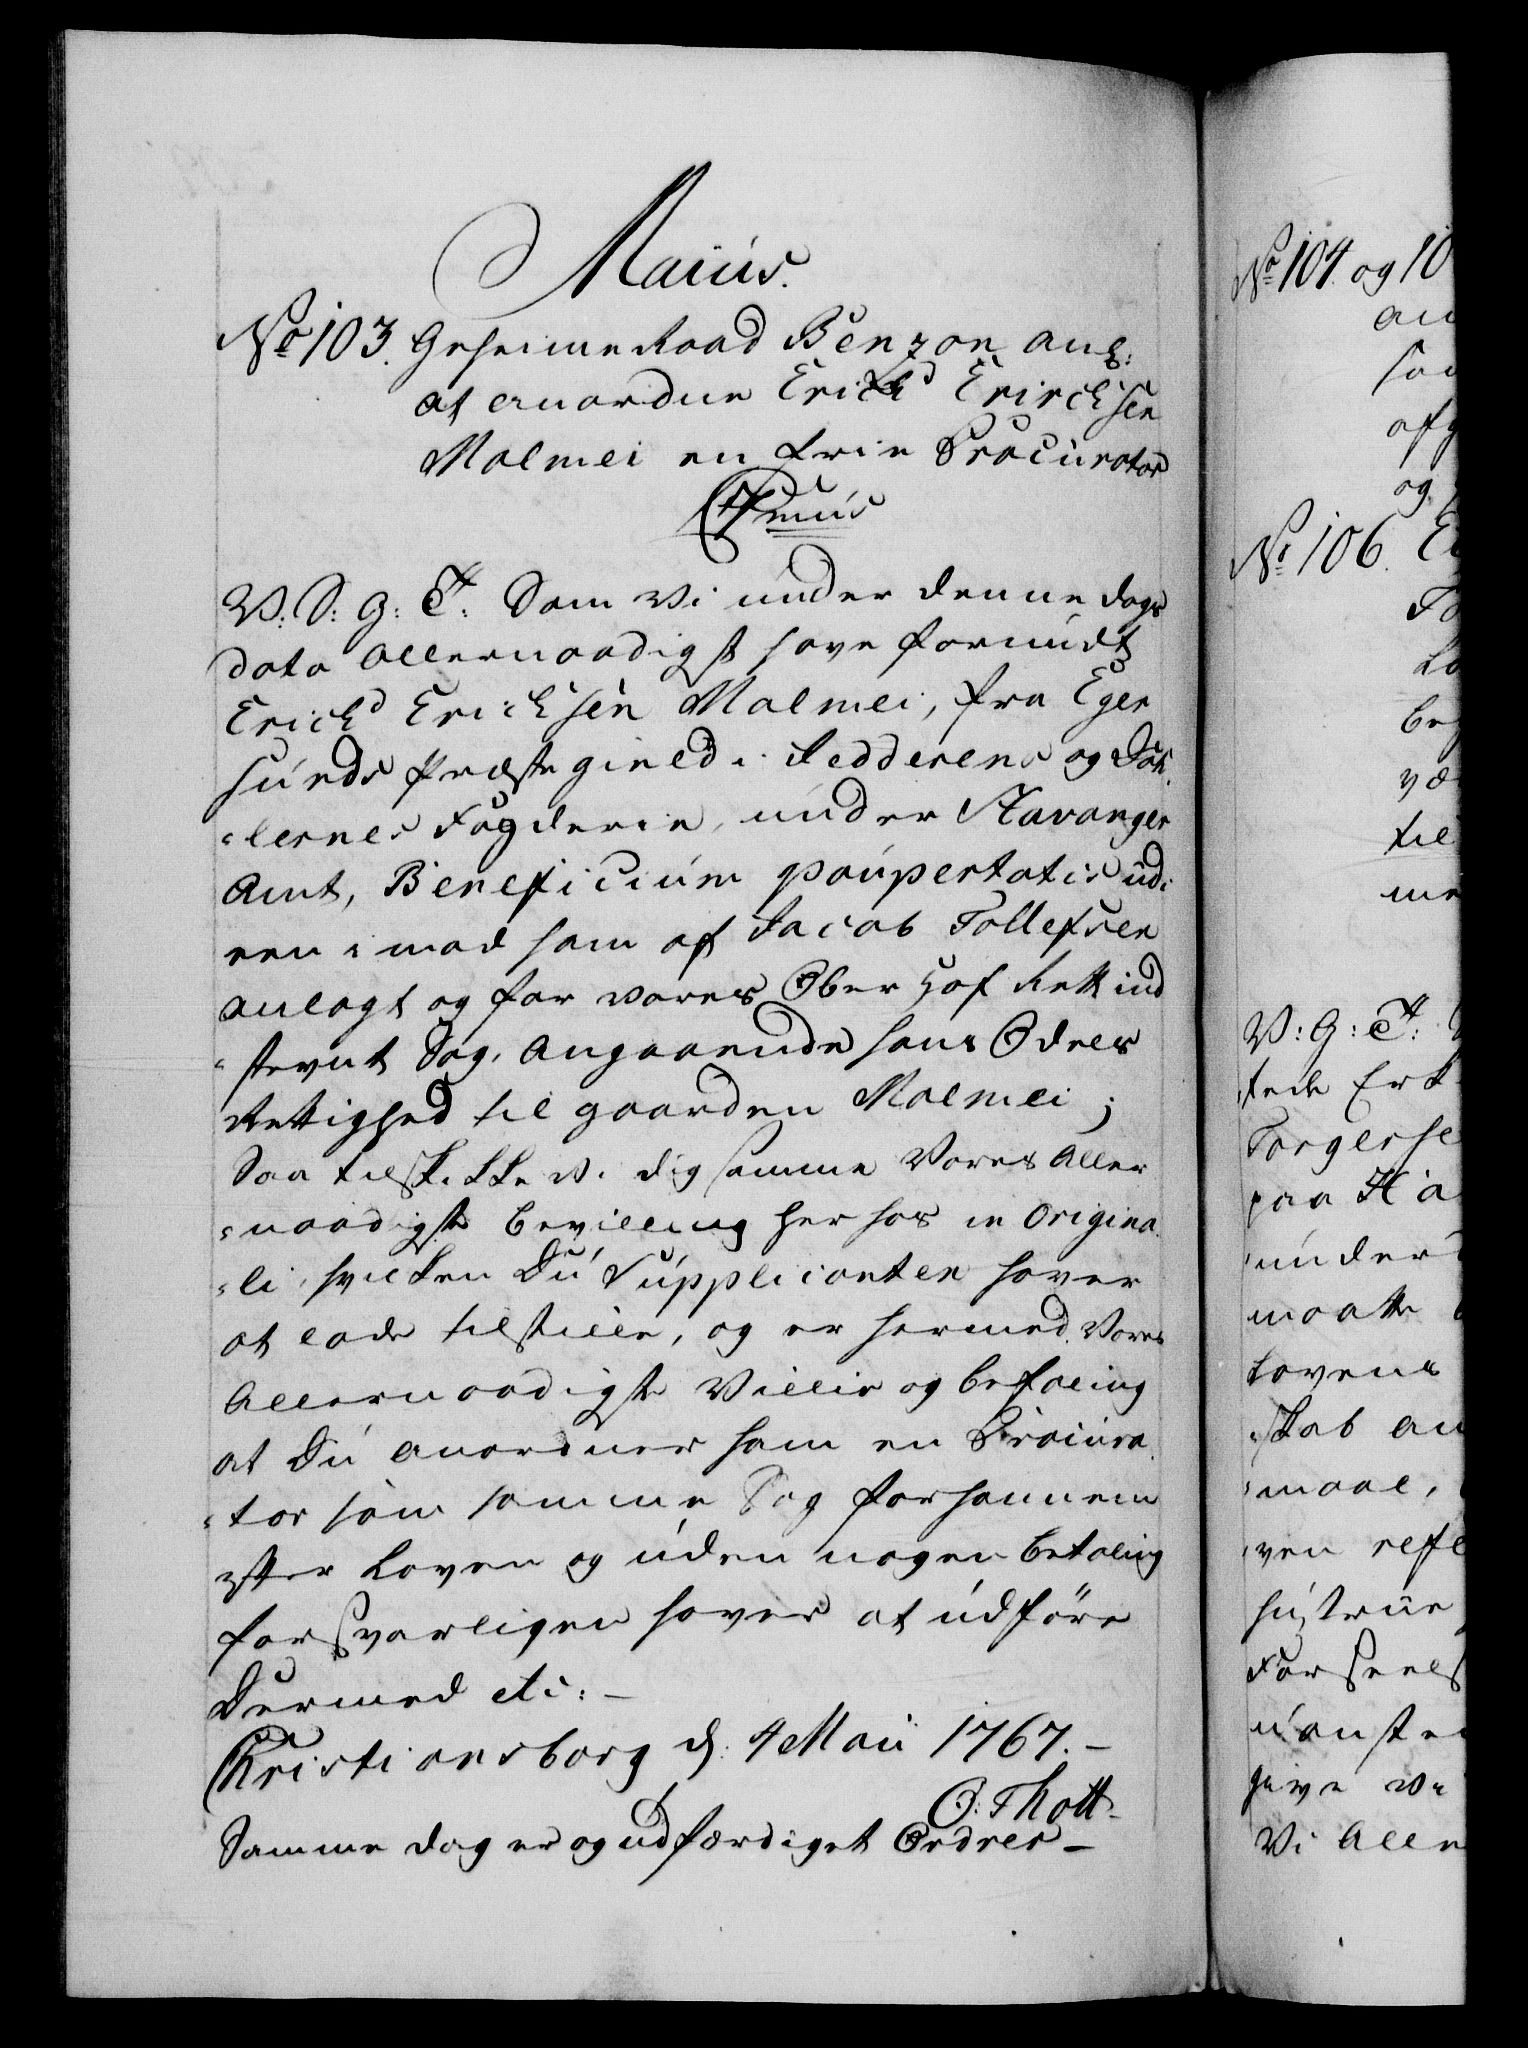 Maius.
No 103. Geheime Raad Benzon ang:
at anordne Erich Erichsen
Malmei en frie Procurator
C 7mus
V: S: G: T: Som Vi under denne dags
dato Allernaadigst have forundt
Erich Erichsen Malmei, fra Eger
sunds Præstegield i Jedderens og Dah,
lernes Fogderie, under Stavanger
Amt, Beneficium paupertatis udi
een imod ham af Jacob Tollefsen
anlagt og for vores Ober Hof Rett ind
stevnt Sag, Angaaende hans Odels
Rettighed til gaarden Malmei;
Saa tilskikke Vi dig samme Vores Aller
naadigste bevilling her hos in Origina
li, hvilken Du Supplicanten haver
at lade tilstille, og er hermed Vores
Allernaadigste Villie og befaling
at Du anordner ham en Procura
tor som samme Sag for hannem
efter Loven og uden nogen betaling
forsvarligen haver at udføre
Dermed etc: –
Christiansborg d: 4 Maii 1767. –
O: Thott –
Samme dag er og udfærdiget Ordres –
No 104. og 10
an
afg
og
No 106. E
til
V: G: T:
Torgerse
paa Ha
under
maatte
Lovens
skab an
maal,
ven refl
hustrue
Forseels
uanste
give Vi
Vi Alle